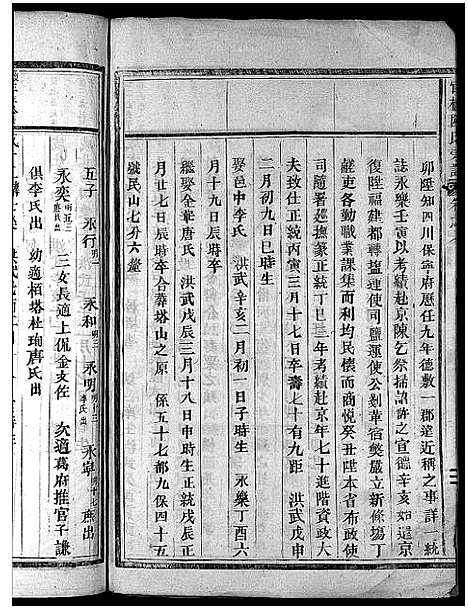 卯陞知四川保寧府歷任九年德敷一郡遠近稱之事詳一統
誌永樂壬寅以考績赴京陳乞祭掃詔許之宣德辛亥如還京
陞福建都轉鹽運使司鹽運使公剗革宿獘嚴立新條蕩丁
課集而利均民懷而商悅癸丑陞本省布政使
司隨署巡撫篆正統丁巳三年考績赴京年七十進階資政
正統丙寅三月十七日卒壽七十有九距洪武戊申
月初九日巳時生
娶邑中李氏 洪武辛亥二月初一日子時生 永樂丁酉六
月十九日辰時卒
繼娶金華唐氏 洪武戊辰三月十八日申時生正統戊辰正
月廿七日辰時卒合葬塔山之原 係五十七都九保四十五
號民山七分六釐
五子 永行 永和 永明 永寧 庶出
永奕 三女長適上侃金支在 次適葛府推官子謙
俱李氏出 幼適栢塔杜珣唐氏出